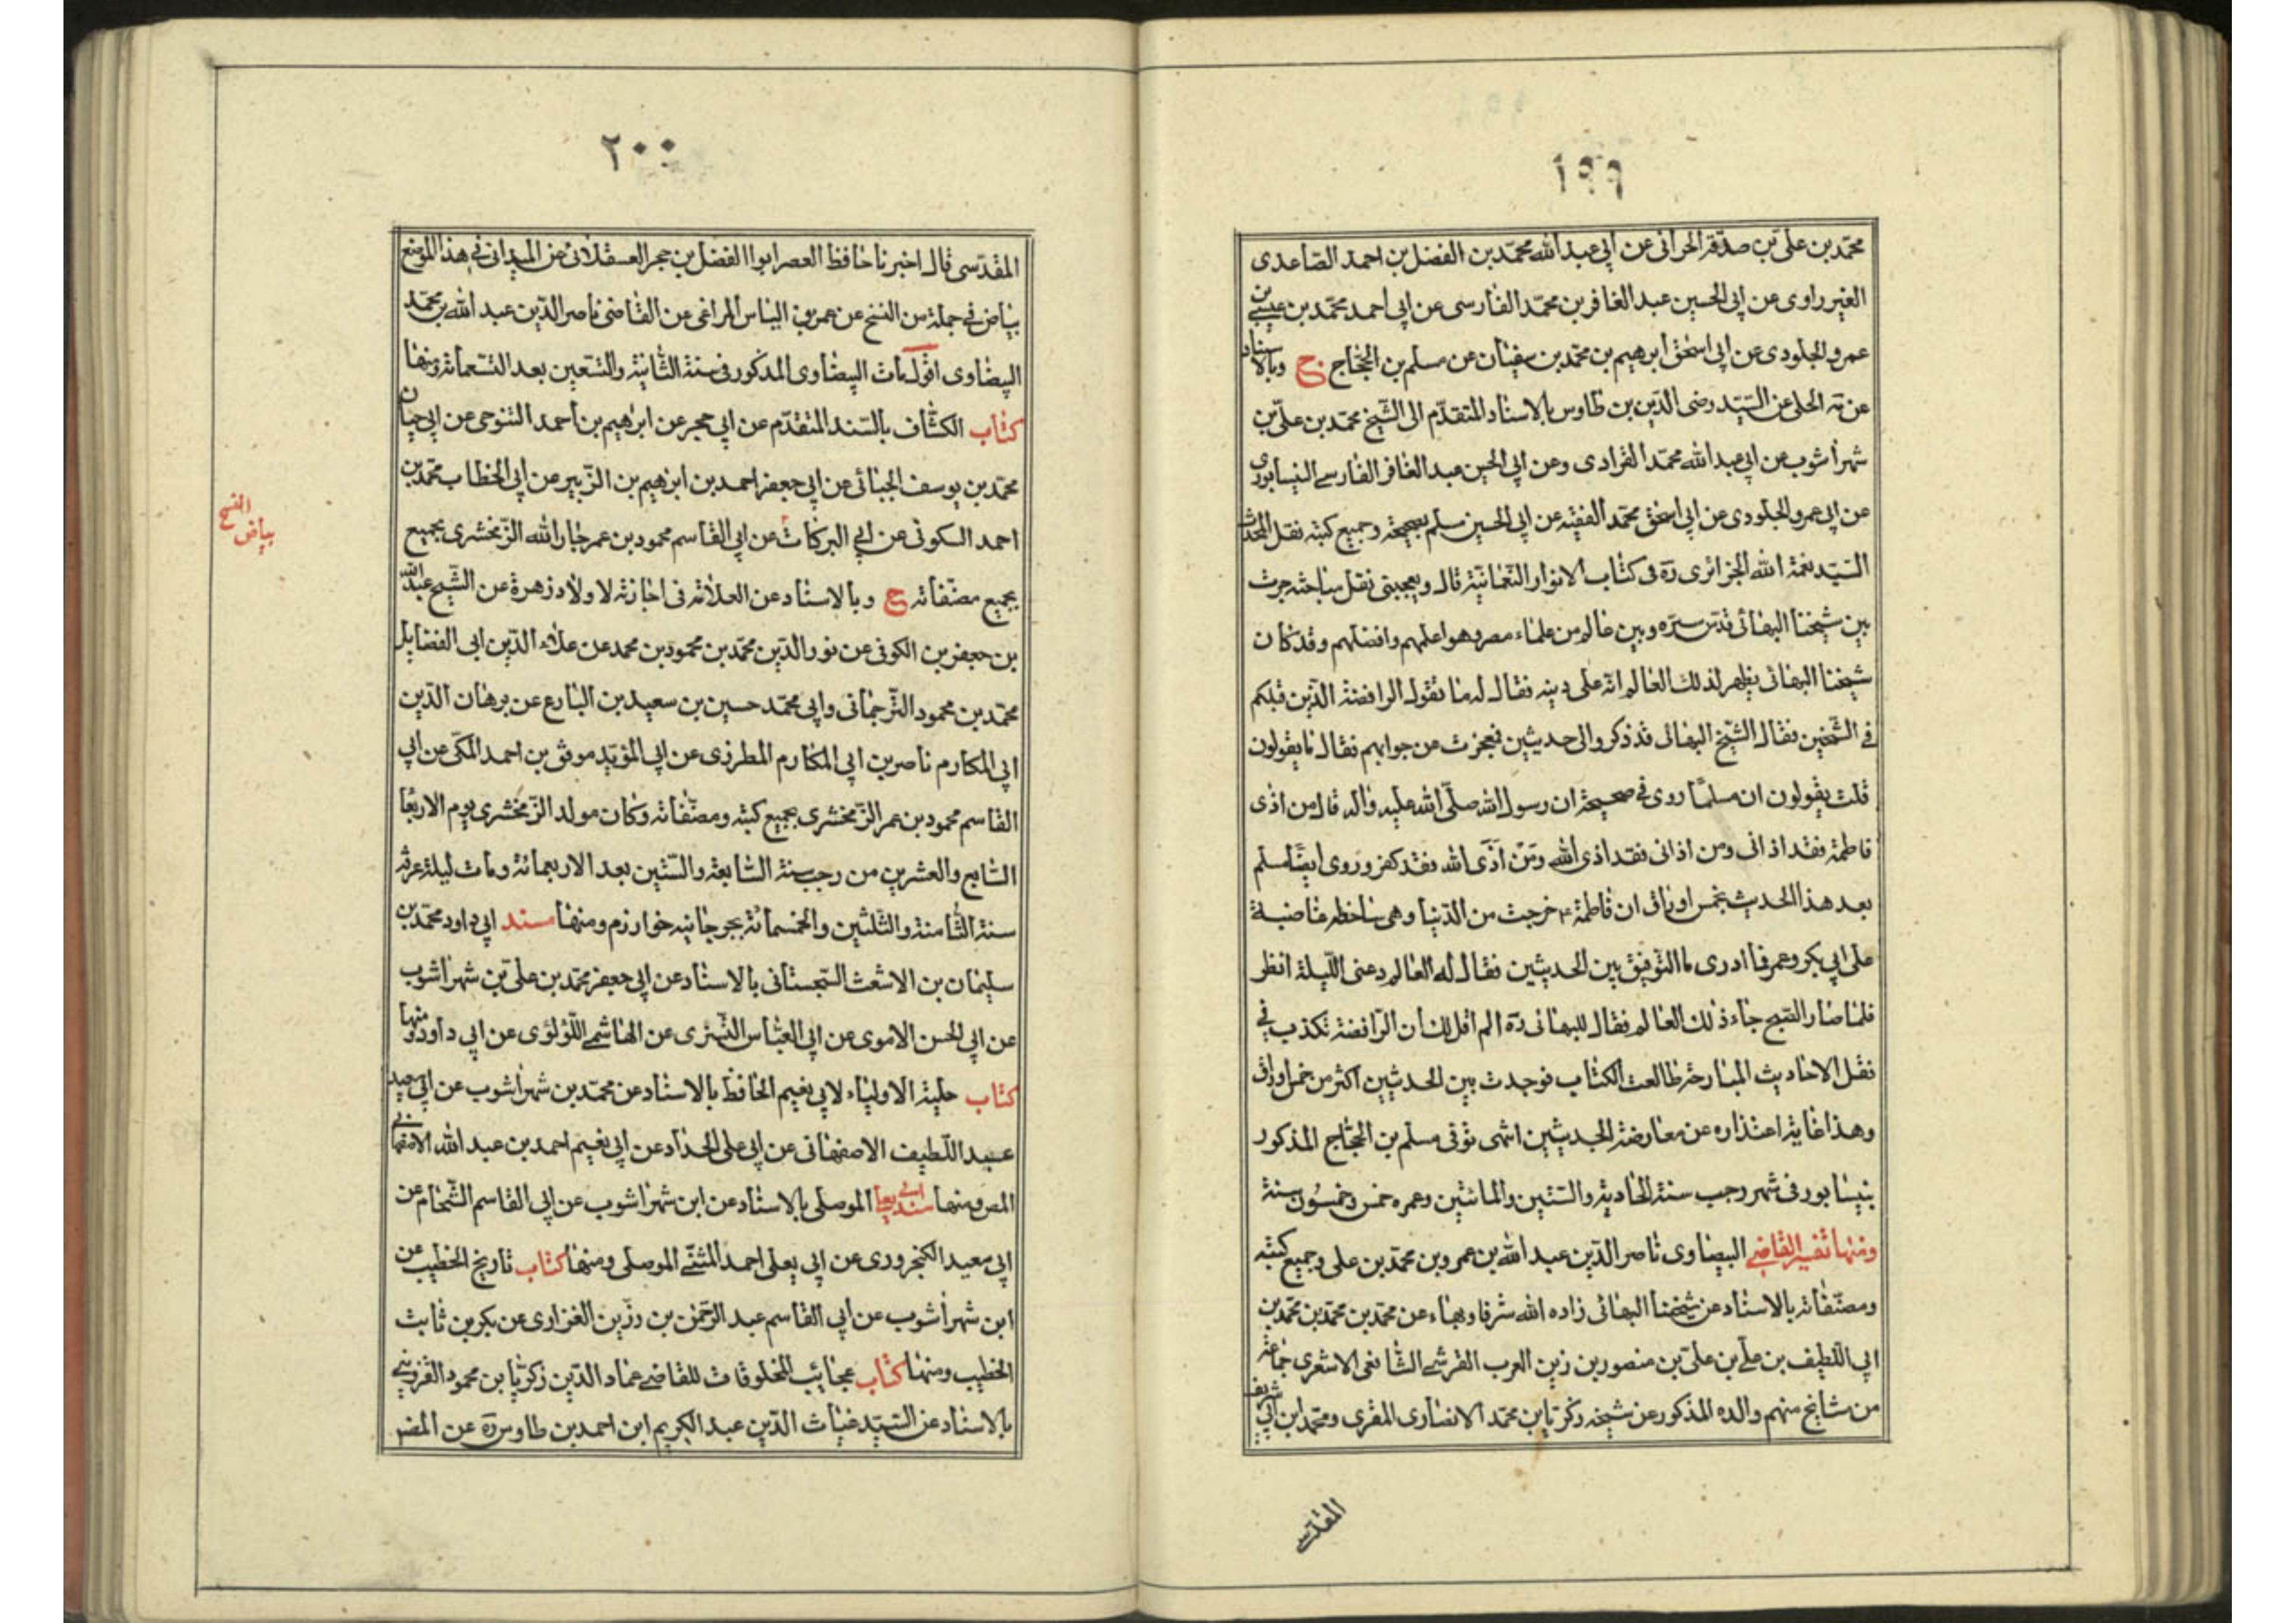 ١٩٩
محمد بن علي بن صدقة الحراني عن ابي عبد الله محمد بن الفضل بن احمد الصاعدى
الغيرراوى عن ابي الحسين عبد الغافر بن محمد الفارسى عن ابي احمد محمد بن عيسى بن
عمرو الجلودى عن ابي اسحق ابرهيم بن محمد بن سفيان عن مسلم بن الحجاج ح وبالاسناد
عن ته الحلى عن السيد رضى الدين بن طاوس بالاسناد المتقدم الى الشيخ محمد بن علي بن
شهراشوب عن ابي عبد الله محمد الفرادى وعن ابي الحين عبد الغافر الفارسے النيسابورى
عن ابي عمرو الجلودى عن ابي اسحق محمد الفقيه عن ابي الحسين مسلم بصحيحه وجميع كتبه نقل المحدث
السيد نعمة الله الجزائرى ره فى كتاب الانوار النعمانية قال ويعجبنى نقل مباحثه جرت
بين شيخنا البهائى قدس سره وبين عالم من علماء مصر وهو اعلمهم وافضلهم وقد كان
شيخنا البهائى يظهر لذلك العالم انه على دينه فقال له ما تقول الرافضة الذين قبلكم
فى الشيخين فقال الشيخ البهائى قد ذكروا لى حديثين فعجزت عن جوابهم فقال ما يقولون
قلت يقولون ان مسلما روى فى صحيحه ان رسول الله صلى الله عليه واله قال من اذى
فاطمة فقد اذانى ومن اذانى فقد اذى الله ومن آذى الله فقد كفر وروى ايضا مسلم
بعد هذا الحديث بخمس اوراق ان فاطمة ع خرجت من الدنيا وهى ساخطه غاضبة
على ابي بكر وعمر فما ادرى ما التوفيق بين الحديثين فقال له العالم دعنى الليلة انظر
فلما صار الصبح جاء ذلك العالم فقال للبهائى ره الم اقل لك ان الرافضة تكذب فى
نقل الاحاديث البارحة طالعت الكتاب فوجدت بين الحديثين اكثر من خمس اوراق
وهذا غاية اعتذاره عن معارضة الحديثين انتهى توفى مسلم بن الحجاج المذكور
بنيسابور فى شهر رجب سنة الحادية والستين والماتين وعمره خمس وخمسون سنة
ومنها تفسير القاضى البيضاوى ناصر الدين عبد الله بن عمرو بن محمد بن على وجميع كتبه
ومصنفاته بالاسناد عن شيخنا البهائى زاده الله شرفا وبهاء عن محمد بن محمد بن محمد بن
ابي اللطيف بن علے بن علي بن منصور بن زين العرب القرشے الشافعى الاشعرى جماعة
من مشايخ منهم والده المذكور عن شيخه زكريا بن محمد الانصارى المقرى ومحمد ابن ابي شريف
المقدسى
٢٠٠
المقدسى قال اخبرنا حافظ العصر ابوا الفضل بن حجر العسقلانى عن الميدانى فى هذا الموضع
بياض فى جملة من النسخ عن عمر بن الياس المراغى عن القاضى ناصر الدين عبد الله بن محمد
البيضاوى اقول مات البيضاوى المذكور فى سنة الثانية والتسعين بعد التسعمائة ومنها
كتاب الكشاف بالسند المتقدم عن ابي حجر عن ابراهيم بن احمد التنوحى عن ابي حيان
محمد بن يوسف الجبائى عن ابي جعفر احمد بن ابرهيم بن الزبير عن ابي الخطاب محمد بن
احمد السكونى عن ابي البركات عن ابي القاسم محمود بن عمر جار الله الزمخشرى بجميع
بجميع مصنفاته ح وبالاسناد عن العلامة فى اجازته لاولاد زهرة عن الشيخ عبد الله
بن جعفر بن الكوفى عن نور الدين محمد بن محمود بن محمد عن علاء الدين ابى الفضايل
محمد بن محمود الترجمانى وابي محمد حسين بن سعيد بن البارع عن برهان الدين
ابي المكارم ناصر بن ابي المكارم المطرزى عن ابي المؤيد موفق بن احمد المكى عن ابي
القاسم محمود بن عمر الزمخشرى بجميع كتبه ومصنفاته وكان مولد الزمخشرى يوم الاربعا
السابع والعشرين من رجب سنة السابعة والستين بعد الاربعمائة ومات ليلة عرفة
سنة الثامنة والثلثين والخمسمائة بجرجانيه خوارزم ومنها سند ابي داود محمد بن
سليمان بن الاشعث السجستانى بالاسناد عن ابي جعفر محمد بن علي بن شهراشوب
عن ابي الحسن الاموى عن ابي العباس التسترى عن الهاشمے اللؤلؤى عن ابي داود ومنها
كتاب حلية الاولياء لابي نعيم الحافظ بالاسناد عن محمد بن شهراشوب عن ابي سعيد
عبد اللطيف الاصفهانى عن ابي على الحداد عن ابي نعيم احمد بن عبد الله الاصفهانى
المص ومنها سند ابي يعلى الموصلى بالاسناد عن ابن شهراشوب عن ابي القاسم الشحام عن
ابي معيد الكنجرورى عن ابي يعلى احمد المثنى الموصلى ومنها كتاب تاريخ الخطيب عن
ابن شهراشوب عن ابي القاسم عبد الرحمن بن رزين الغزارى عن بكر بن ثابت
الخطيب ومنها كتاب عجائب المخلوقات للقاضے عماد الدين زكريا بن محمود القزوينى
بالاسناد عن السيد غياث الدين عبد الكريم ابن احمد بن طاوس ره عن المصر
بياض النسخ